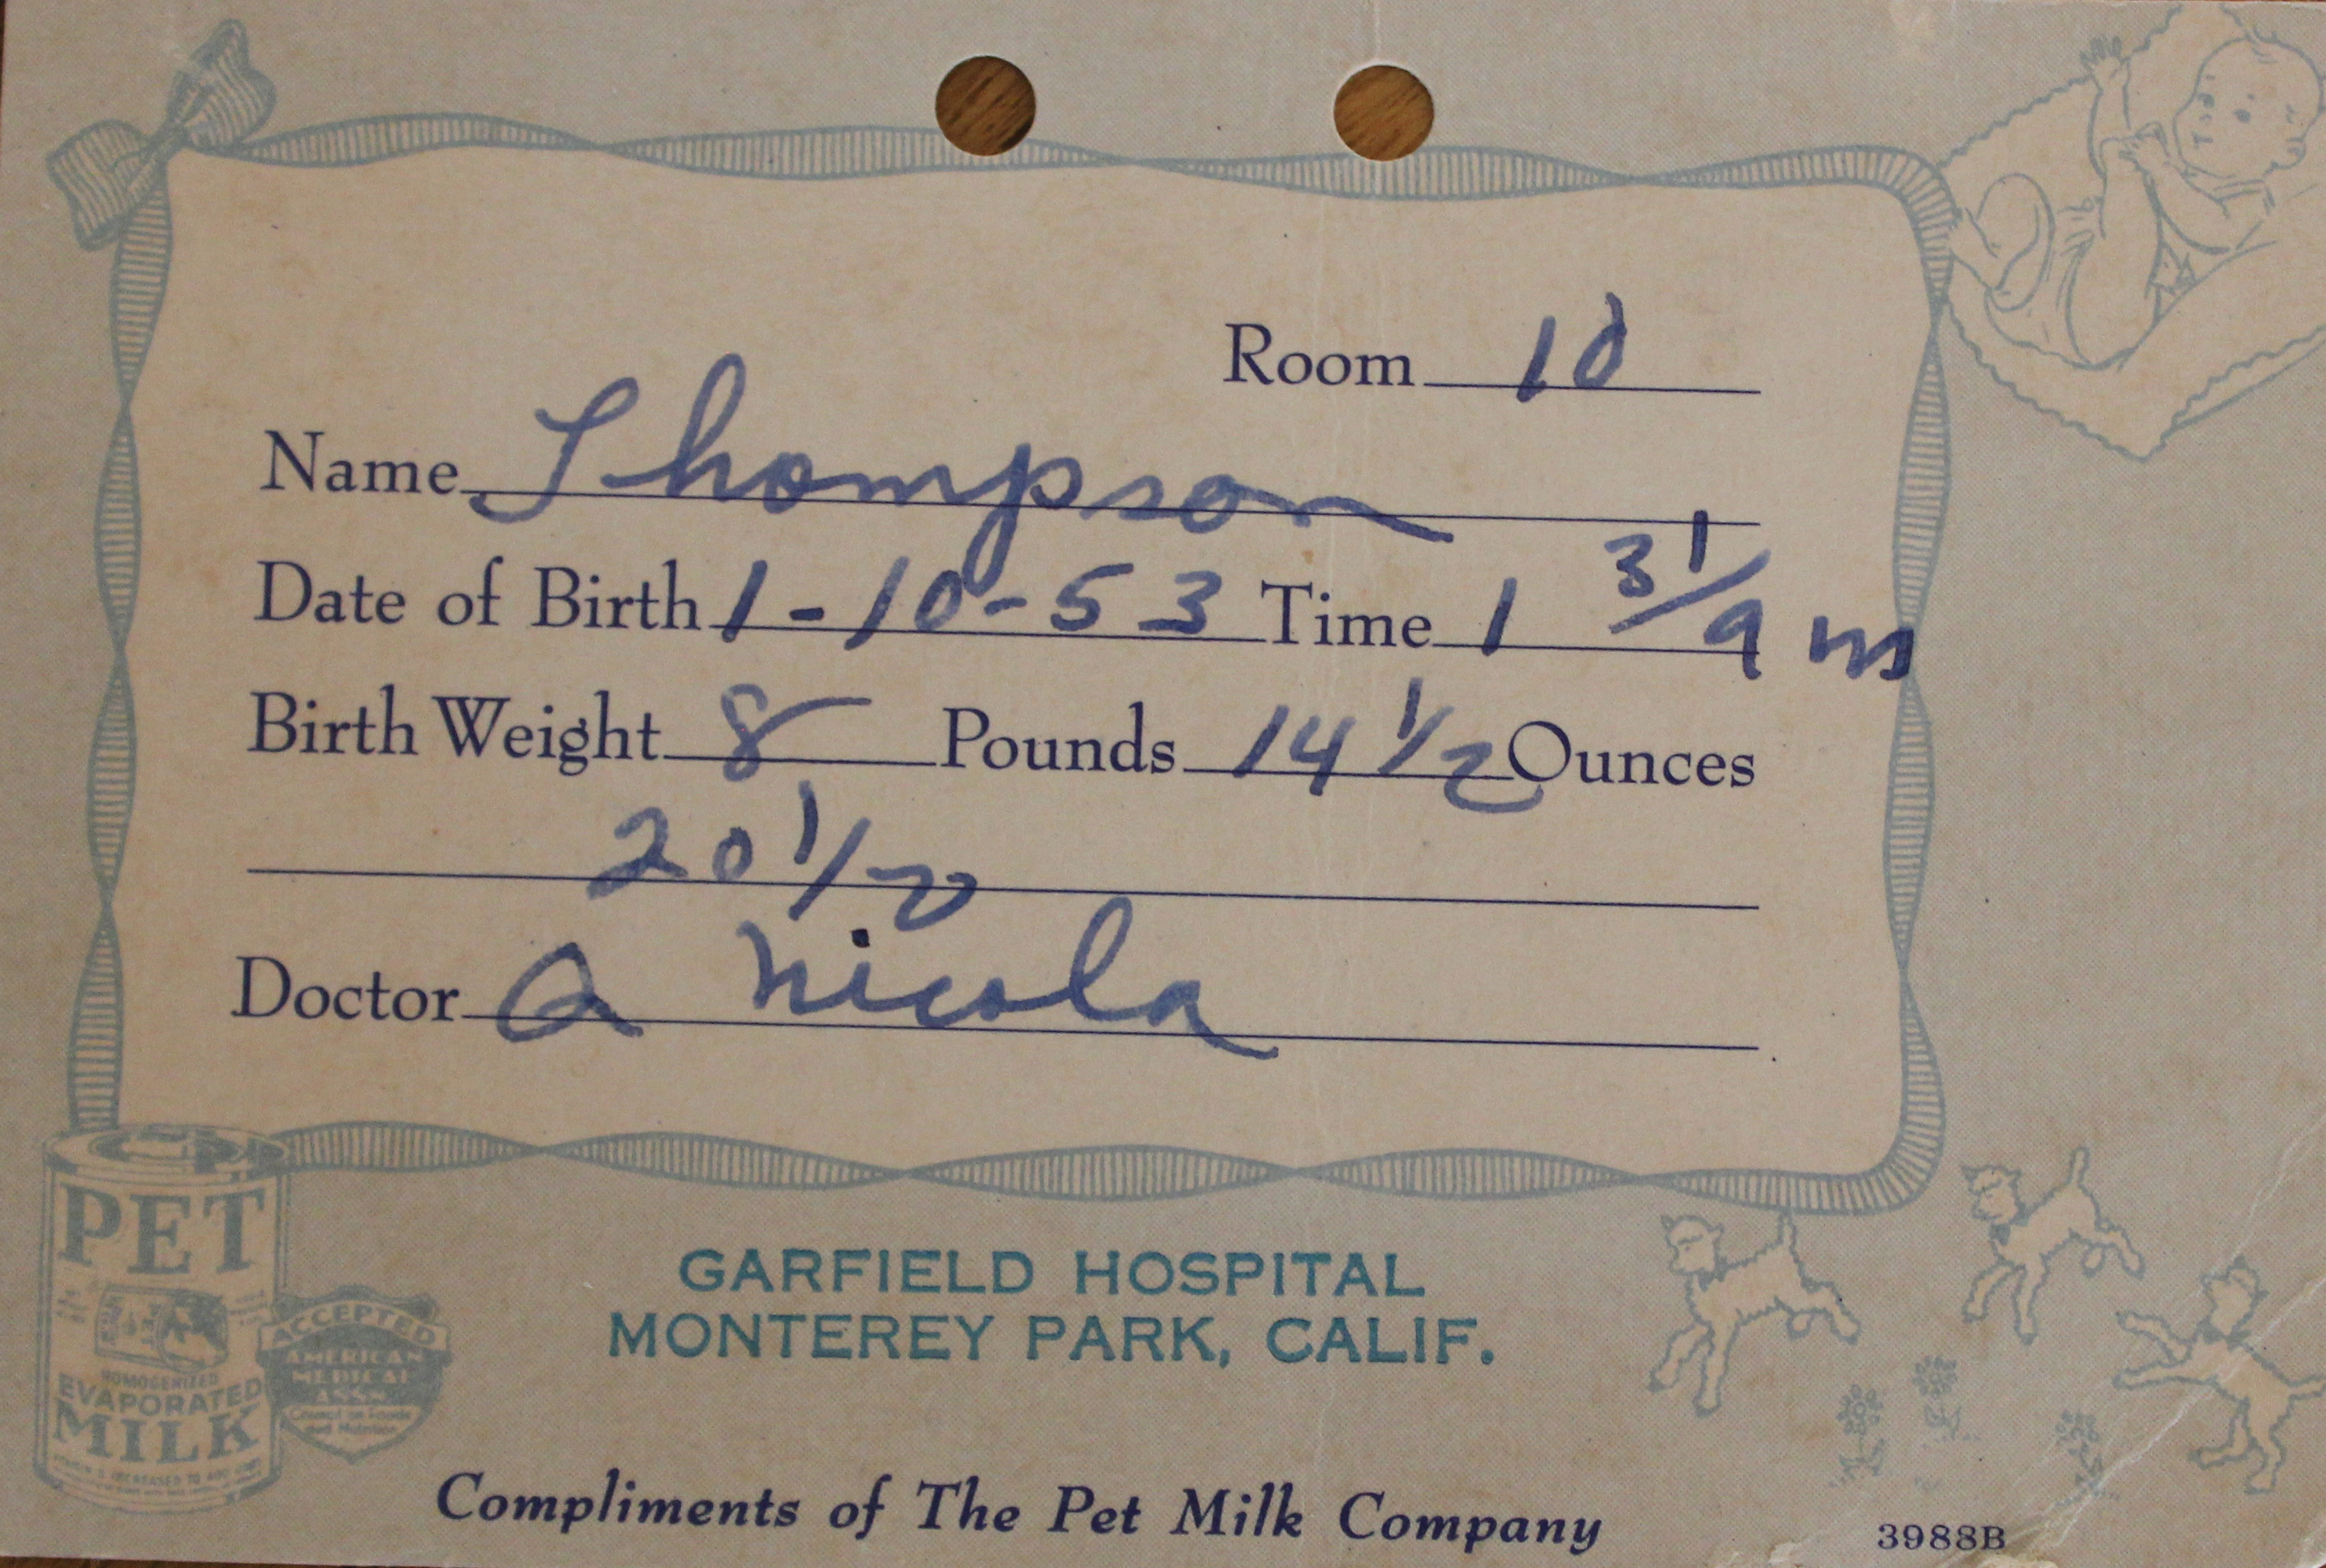 Room 10
Name Thompson
Date of Birth 1-10-53 Time 1 31/am
Birth Weight 8 Pounds 14 1/2 Ounces
20 1/2
Doctor A Nicola
PET
HOMOGENIZED
EVAPORATED
MILK
ACCEPTED
AMERICAN
MEDICAL
ASSN.
Council on Foods
and Nutrition
GARFIELD HOSPITAL
MONTEREY PARK, CALIF.
Compliments of The Pet Milk Company
3988B